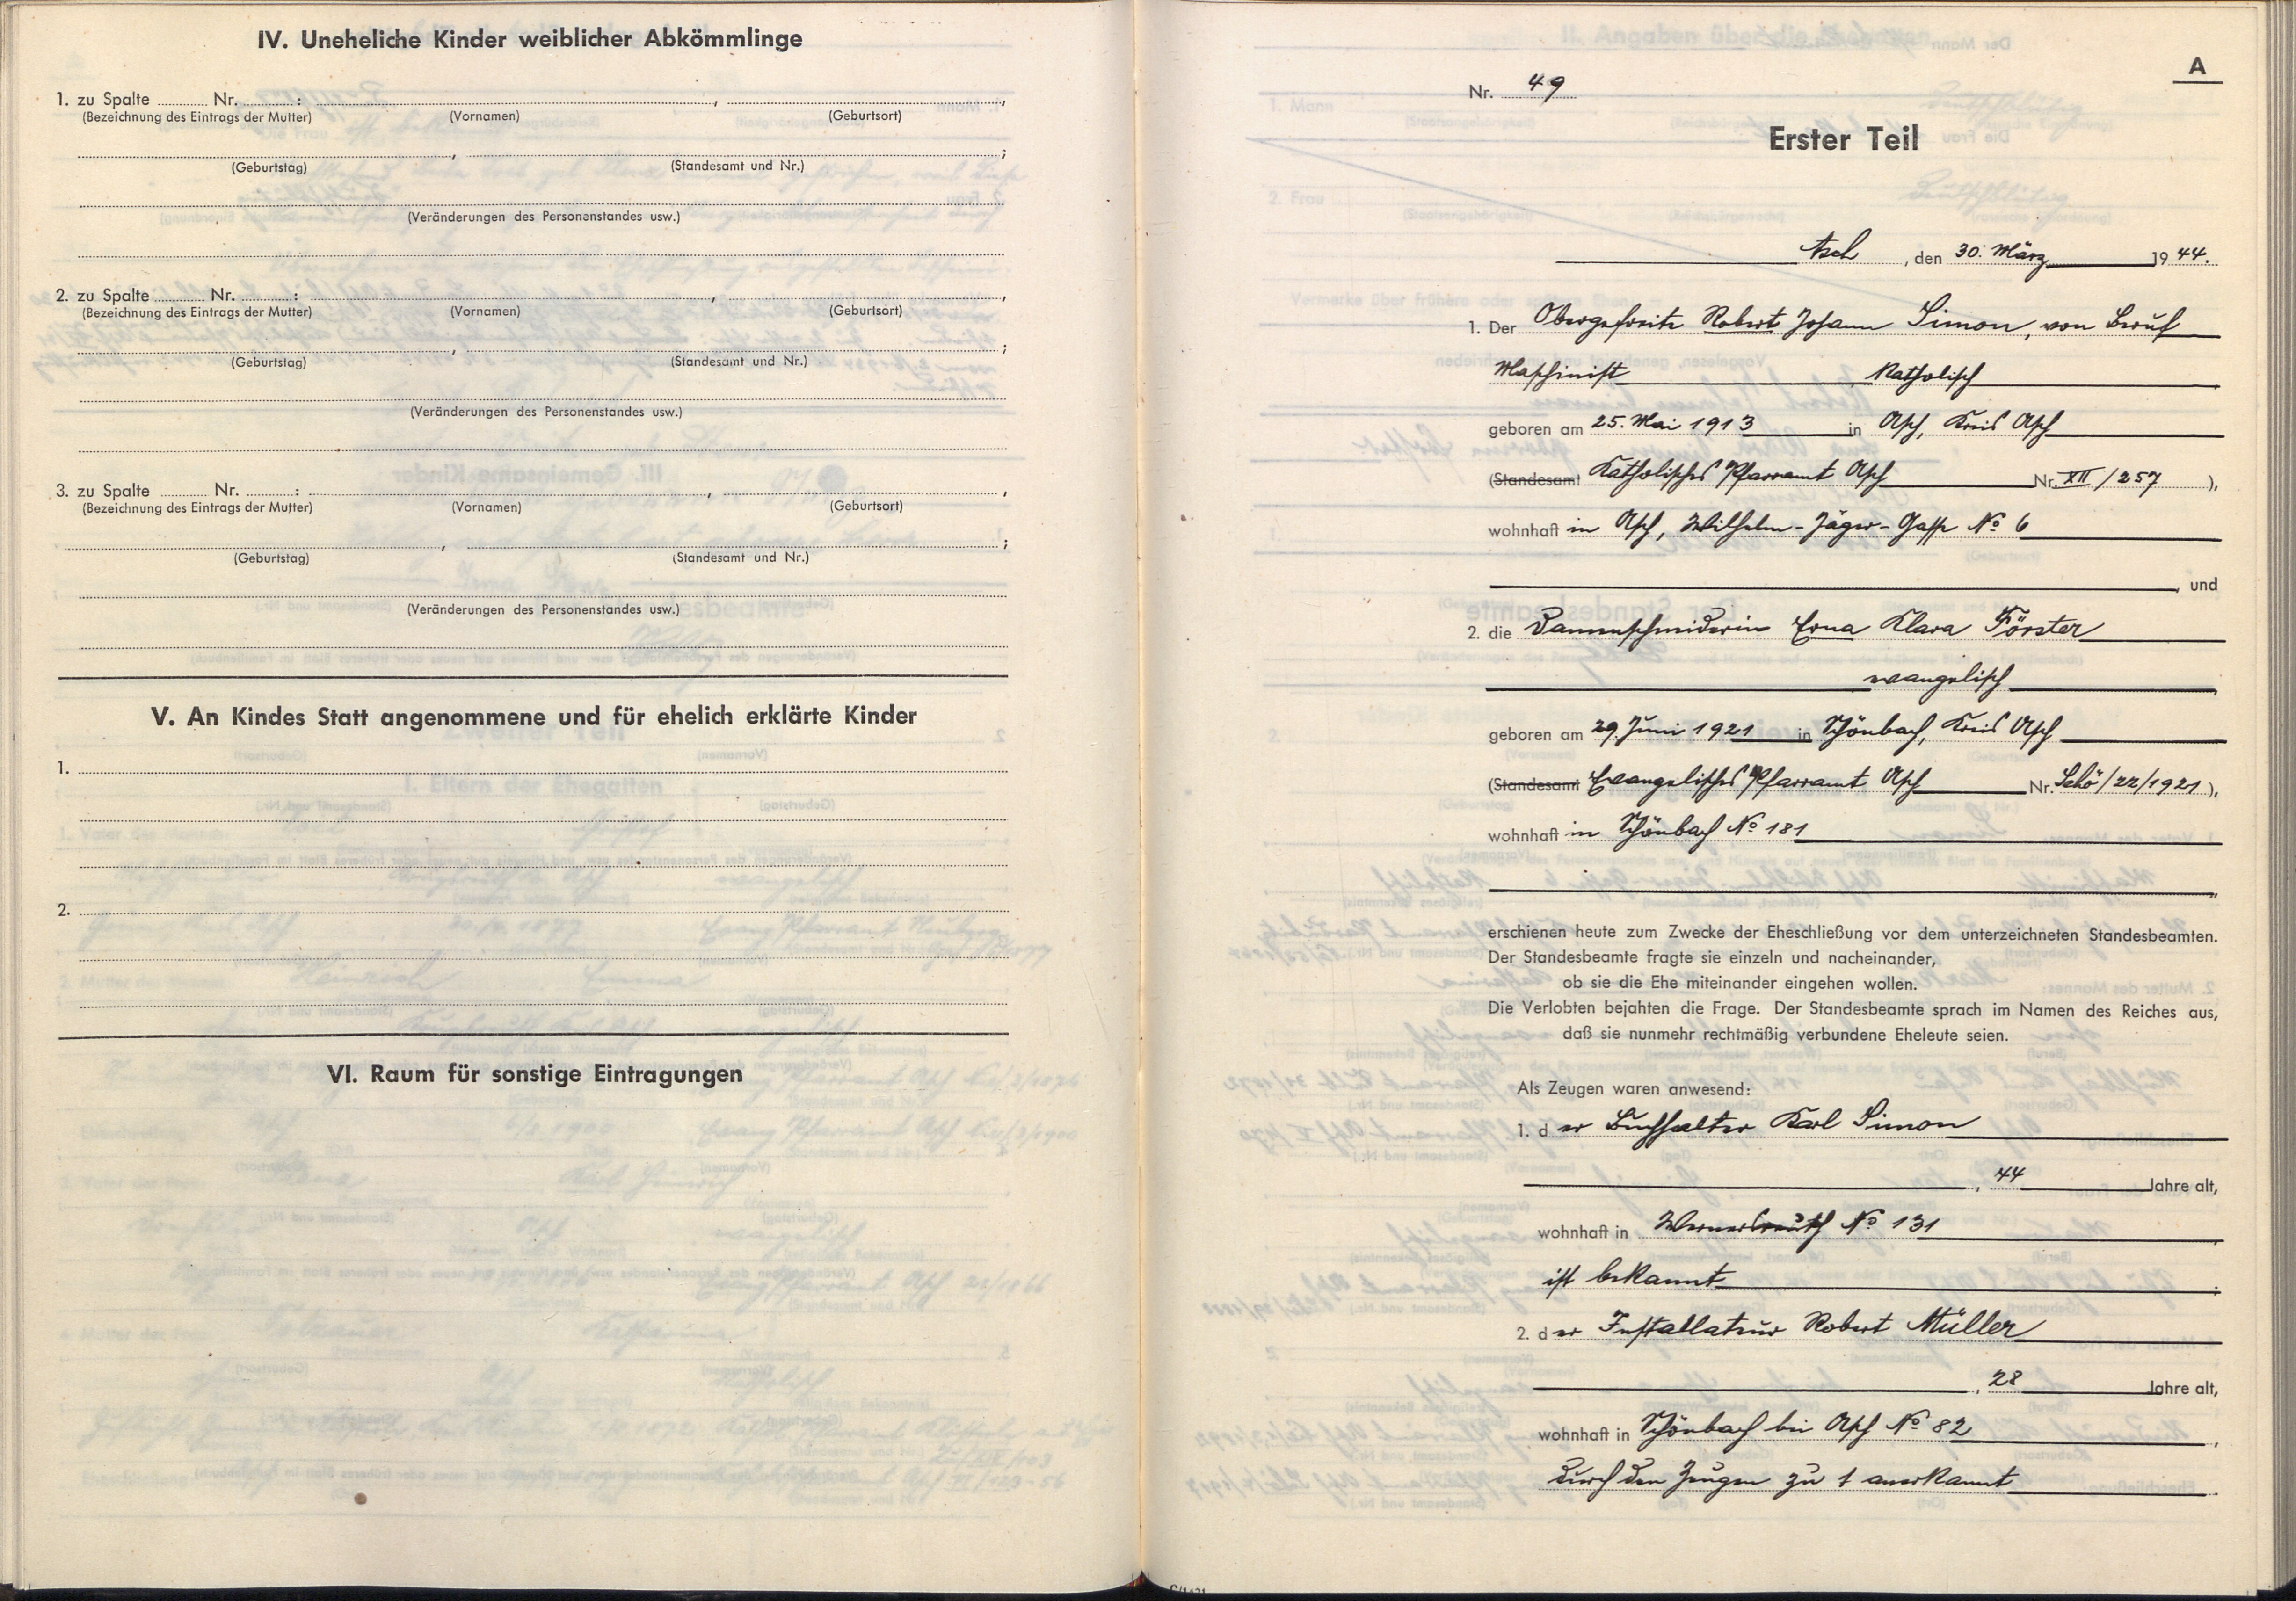 IV. Uneheliche Kinder weiblicher Abkömmlinge
1. zu Spalte ............ Nr. ............ : ............ , ............ ,
(Bezeichnung des Eintrags der Mutter) (Vornamen) (Geburtsort)
............ , ............ ;
(Geburtstag) (Standesamt und Nr.)
(Veränderungen des Personenstandes usw.)
2. zu Spalte ............ Nr. ............ : ............ , ............ ,
(Bezeichnung des Eintrags der Mutter) (Vornamen) (Geburtsort)
............ , ............ ;
(Geburtstag) (Standesamt und Nr.)
(Veränderungen des Personenstandes usw.)
3. zu Spalte ............ Nr. ............ : ............ , ............ ,
(Bezeichnung des Eintrags der Mutter) (Vornamen) (Geburtsort)
............ , ............ ;
(Geburtstag) (Standesamt und Nr.)
(Veränderungen des Personenstandes usw.)
V. An Kindes Statt angenommene und für ehelich erklärte Kinder
1.
2.
VI. Raum für sonstige Eintragungen
A
Nr. 49
Erster Teil
Asch, den 30. März 1944.
1. Der Obergefreite Robert Johann Simon, von Beruf
Maschinist Katholisch
geboren am 25. Mai 1913 in Asch, Kreis Asch
(Standesamt Katholisches Pfarramt Asch Nr. XII/257),
wohnhaft in Asch, Wilhelm-Jäger-Gasse No 6
, und
2. die Damenschneiderin Erna Klara Förster
evangelisch
geboren am 29. Juni 1921 in Schönbach, Kreis Asch
(Standesamt Evangelisches Pfarramt Asch Nr. Schö/22/1921),
wohnhaft in Schönbach No 181
erschienen heute zum Zwecke der Eheschließung vor dem unterzeichneten Standesbeamten.
Der Standesbeamte fragte sie einzeln und nacheinander,
ob sie die Ehe miteinander eingehen wollen.
Die Verlobten bejahten die Frage. Der Standesbeamte sprach im Namen des Reiches aus,
daß sie nunmehr rechtmäßig verbundene Eheleute seien.
Als Zeugen waren anwesend:
1. der Buchhalter Karl Simon
, 44 Jahre alt,
wohnhaft in Wernersreuth No 131
ist bekannt ;
2. der Installateur Robert Müller
, 28 Jahre alt,
wohnhaft in Schönbach bei Asch No 82 ,
durch den Zeugen zu 1 anerkannt .